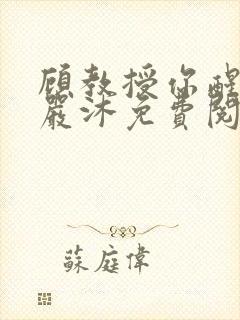 顧教授你醒
嚴沐免費閱
蘇庭偉